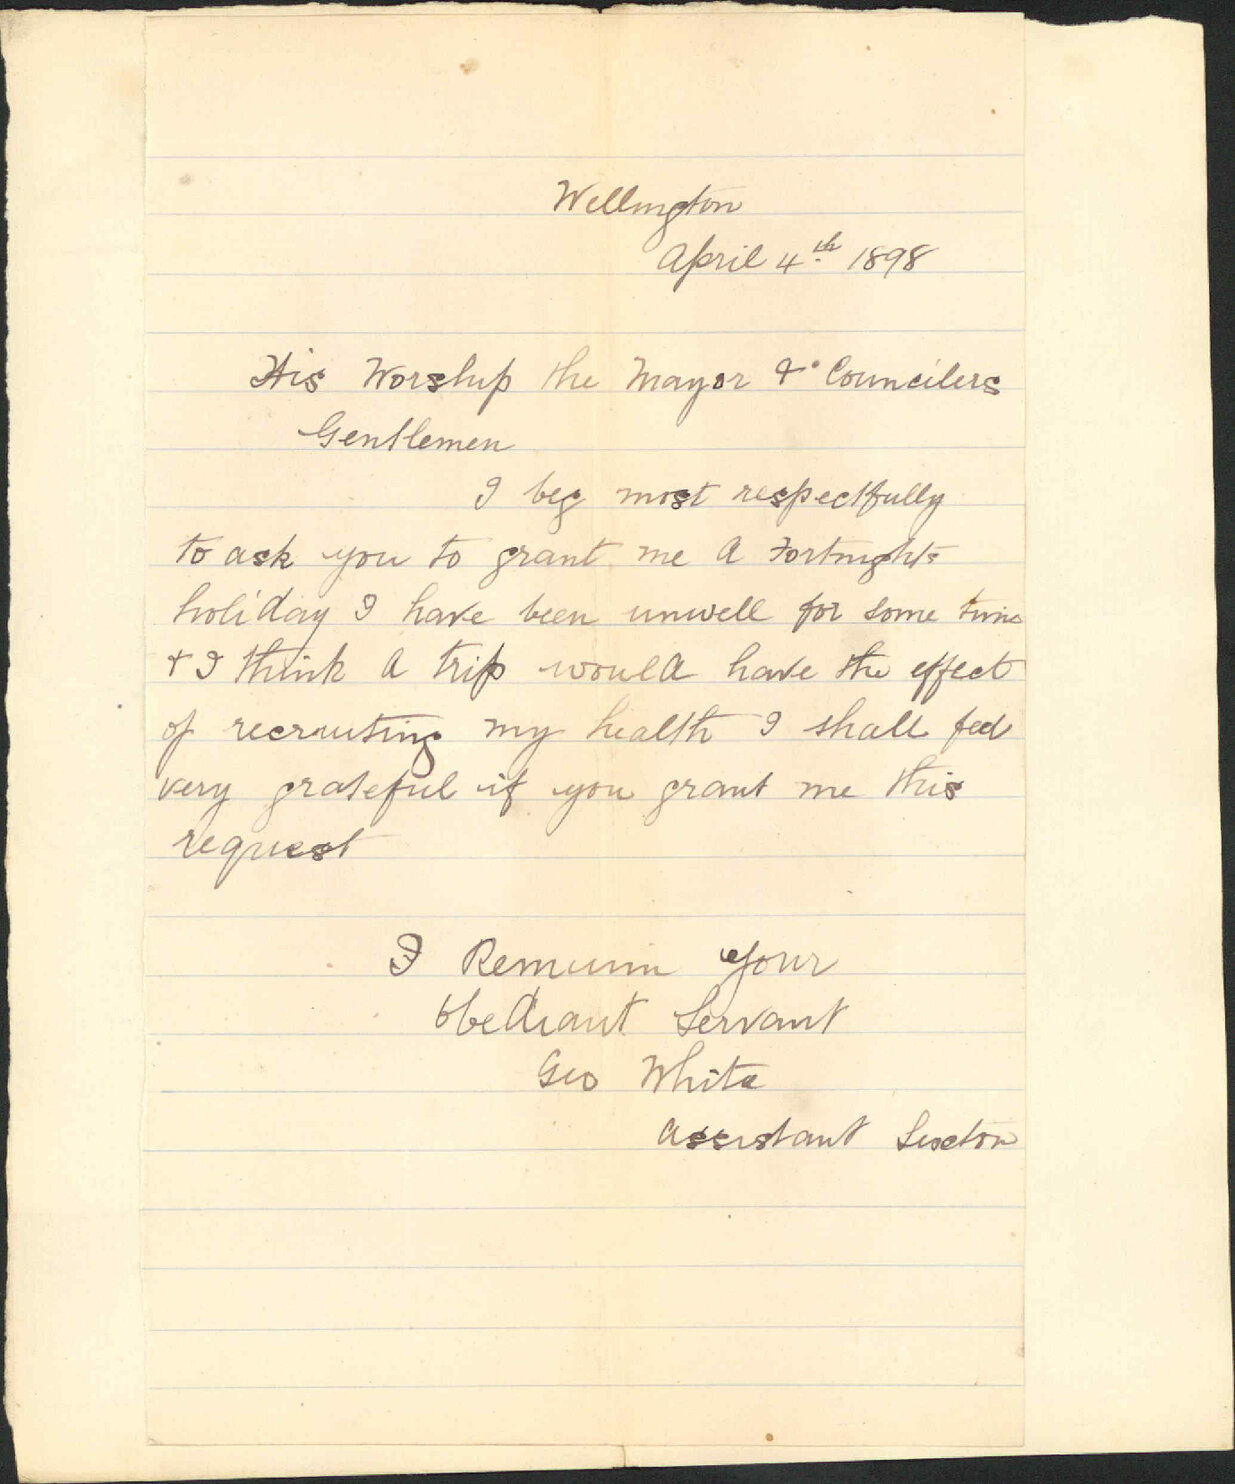 Wellington
April 4th 1898
His Worship the Mayor & Councilers
Gentlemen
I beg most respectfully
to ask you to grant me A Fortnights
holiday I have been unwell for some time
& I think A trip would have the effect
of recruiting my health I shall feel
very grateful if you grant me this
request
I Remain your
Obediant Servant
Geo White
Assistant Sexton